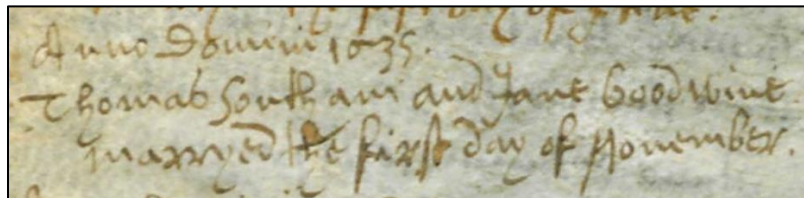 the first day of June.
Anno Domini 1635.
Thomas Southam and Jane Goodwine
marryed the first day of November.